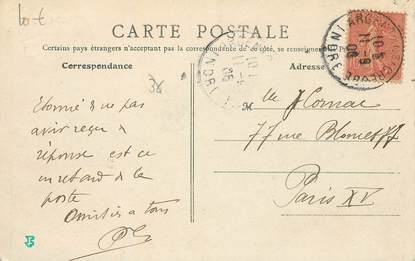 CARTE POSTALE
Certains pays étrangers n'acceptant pas la correspondance de ce côté, se renseigner
Correspondance
Adresse
38
Etonné de ne pas
avoir reçu de
réponse est ce
un retard de la
poste
Amitiés a tous
M
77 rue Blomet 77
Paris XV
ARGENT
INDRE